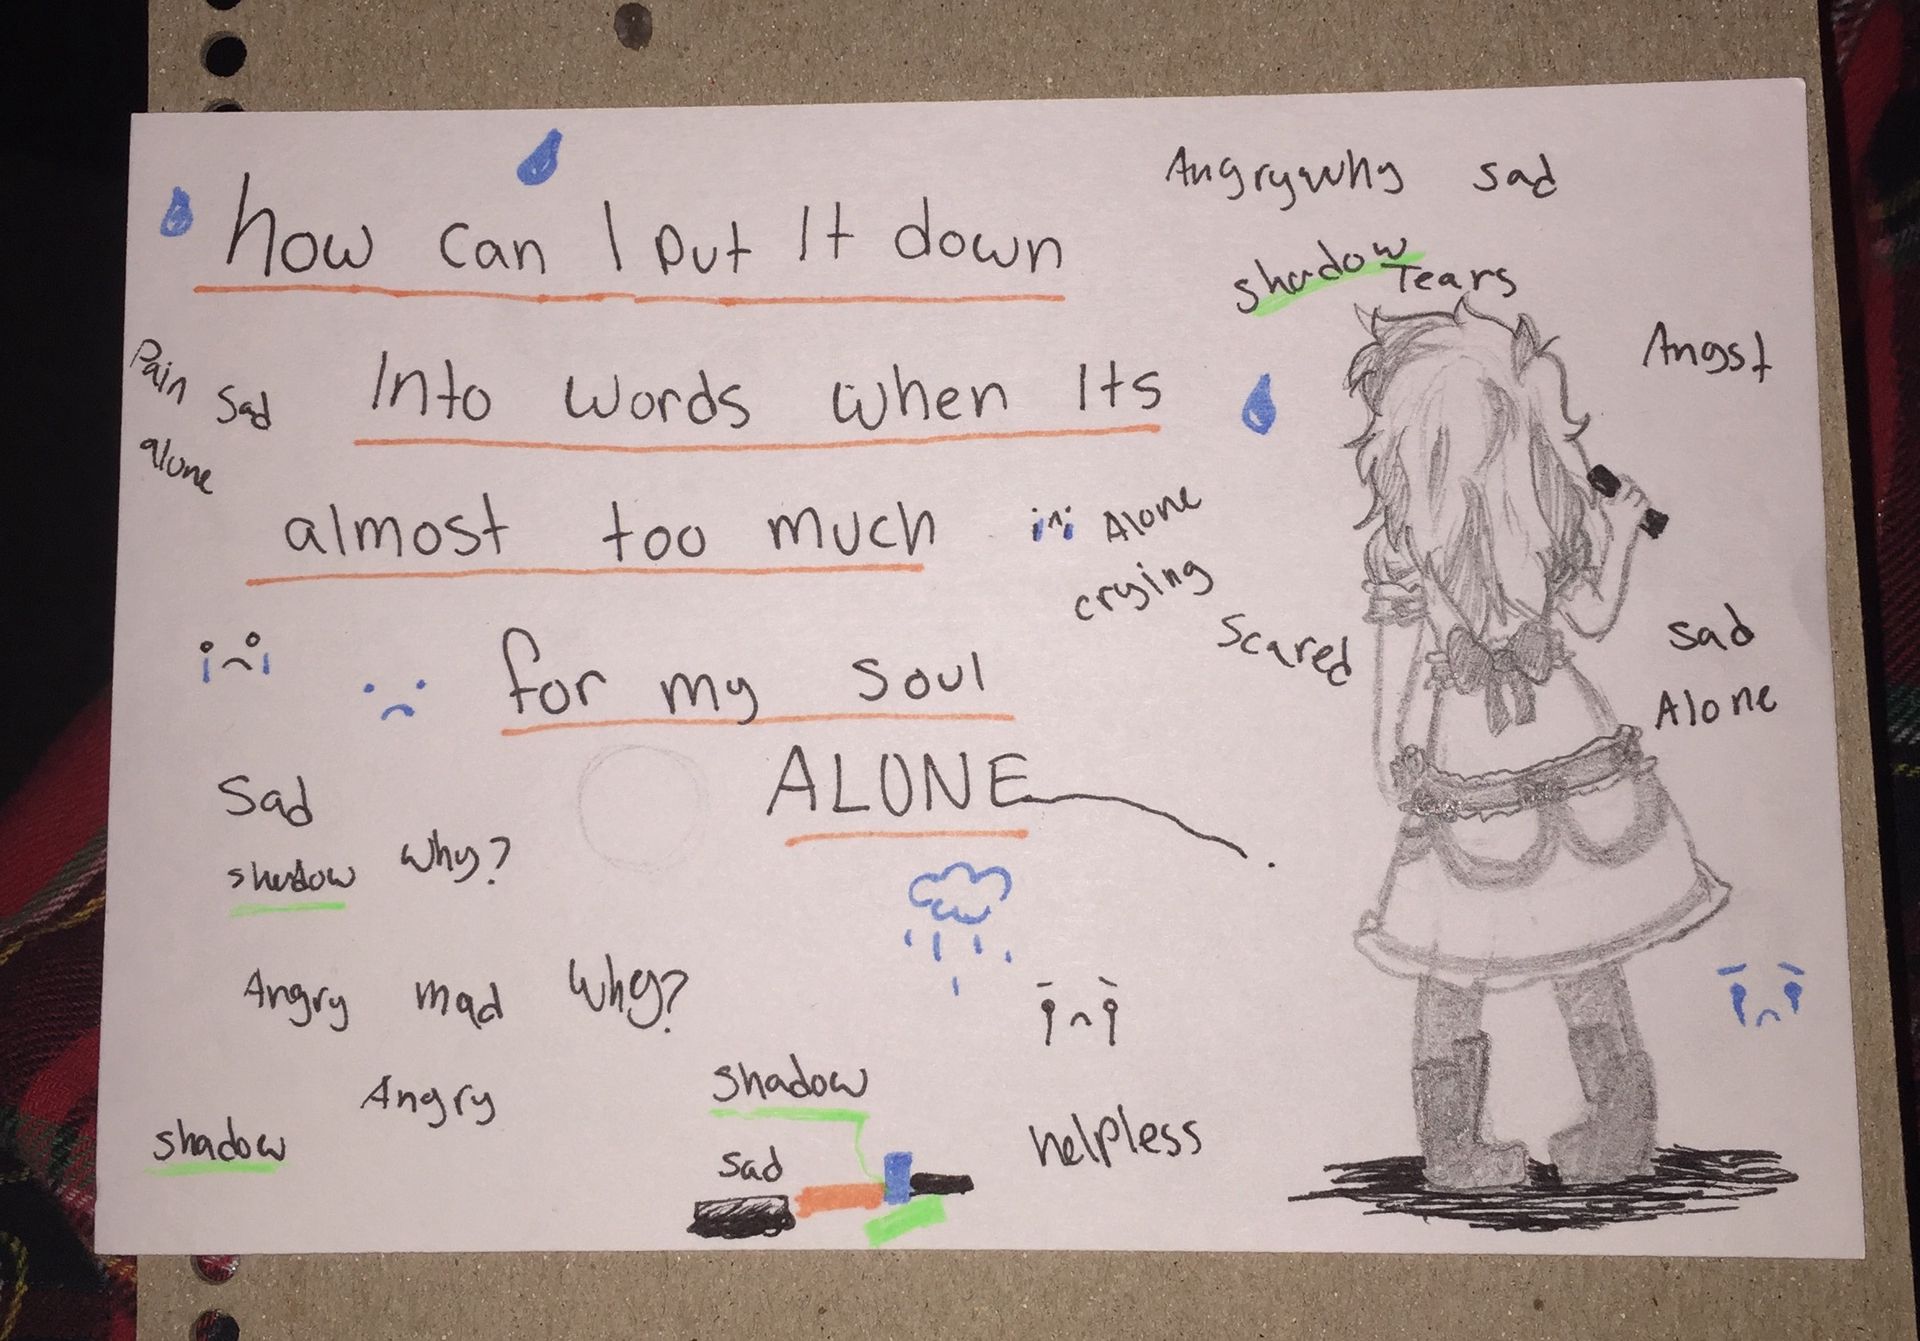 how can I put It down
Into words when Its
almost too much
for my soul
ALONE
Angry why sad
shadow
Tears
Angst
Pain
sad
alone
Alone
crying
Scared
sad
Alone
Sad
shadow
why?
Angry mad why?
Angry
shadow
shadow
sad
helpless